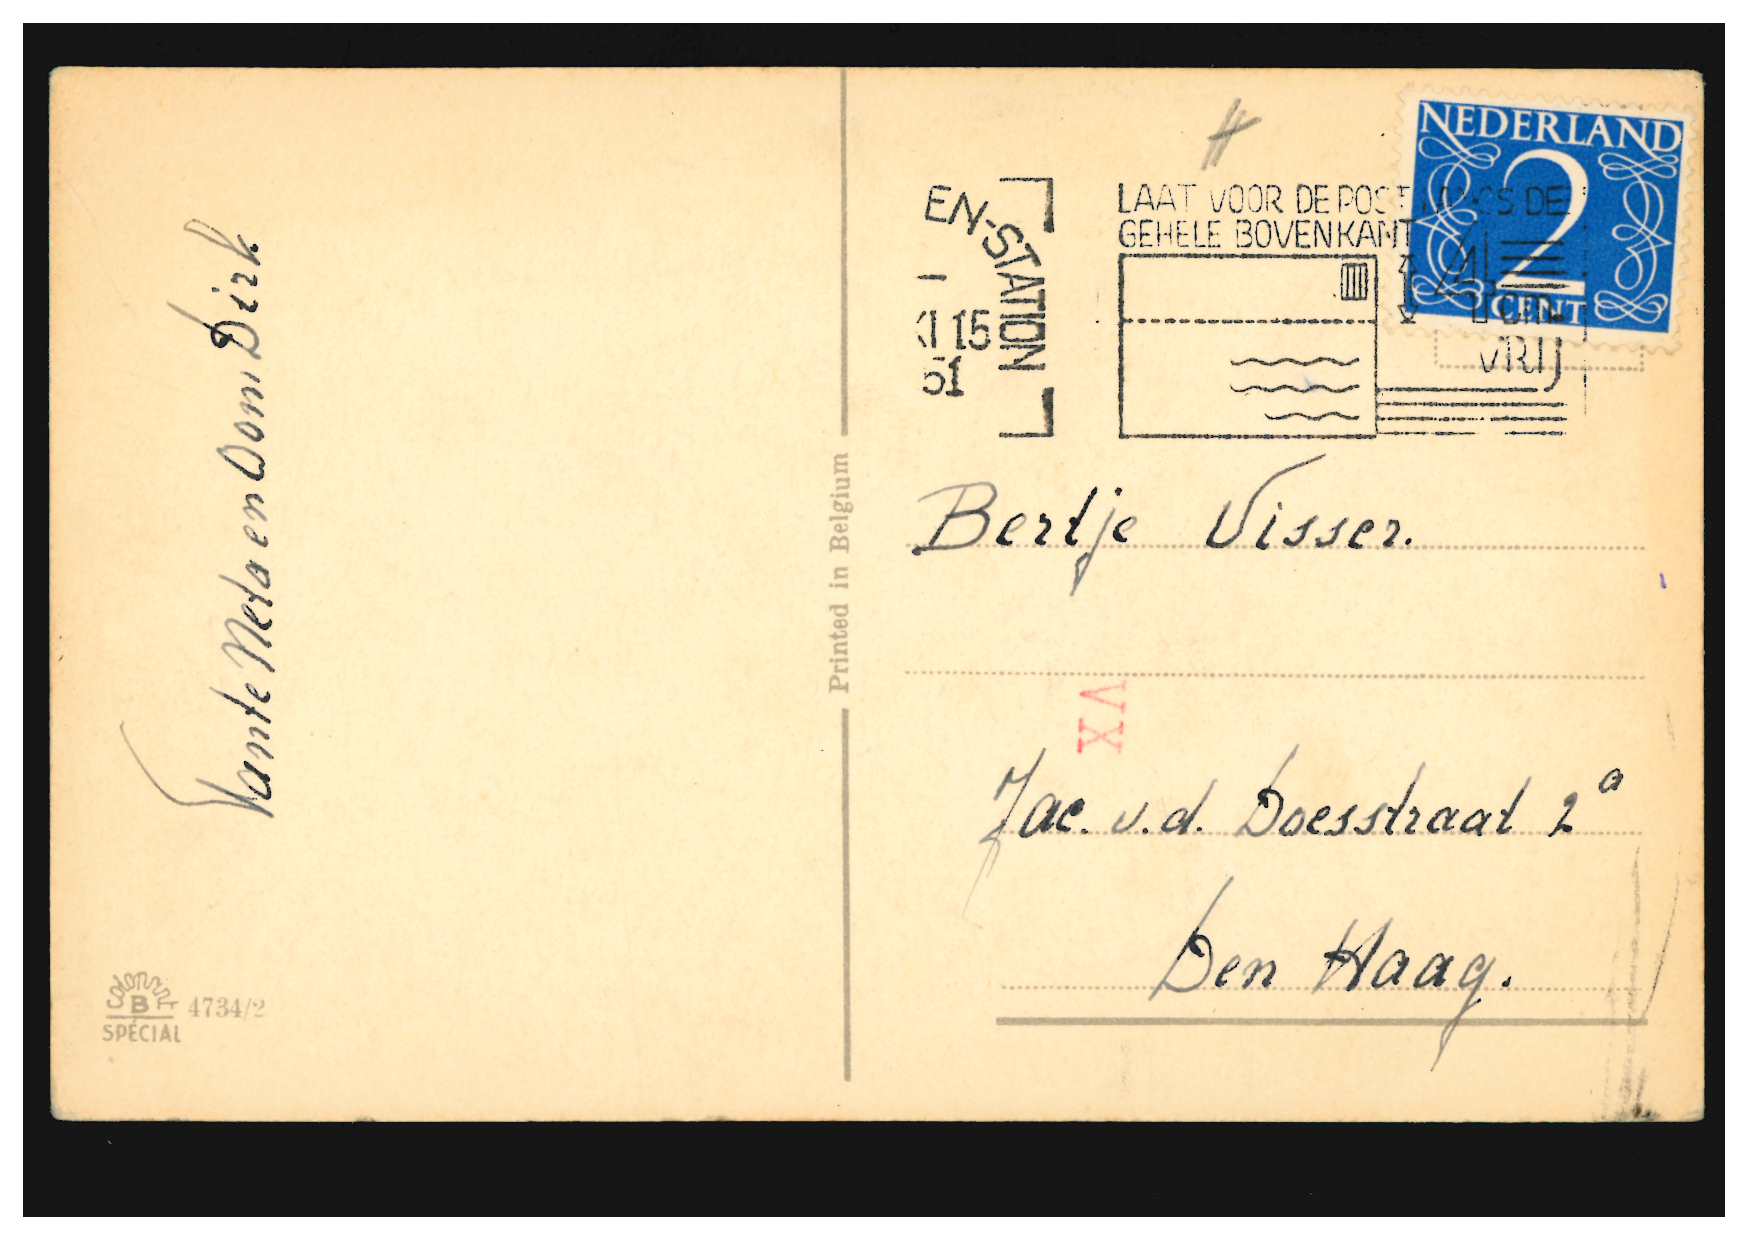 Tante Neta en Oom Dirk
COLOR
B
SPÉCIAL
4734/2
Printed in Belgium
NEDERLAND
2
CENT
EN-STATION
1
XI 15
51
LAAT VOOR DE POST LANGS DE
GEHELE BOVENKANT
4 cm
VRIJ
Bertje Visser.
XV
Jac. v.d. Doesstraat 2a
Den Haag.